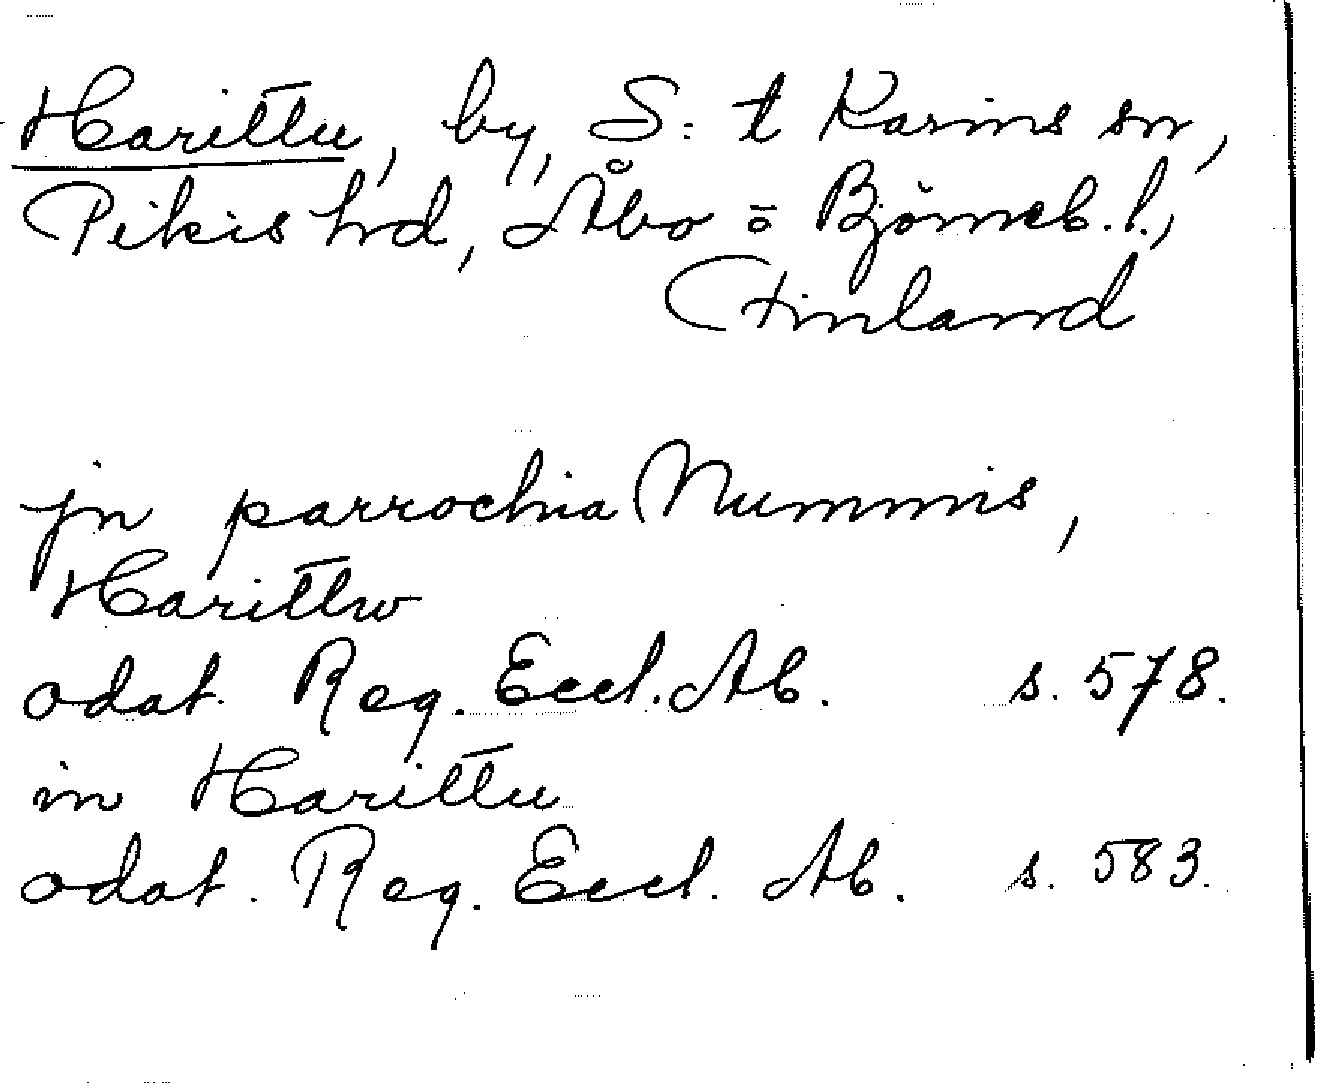 Harittu, by, S:t Karins sn,
Pikis hrd, Åbo o Björneb. l.,
Finland
jn parrochia Nummis,
Harittw
odat. Reg. Eccl. Ab. s. 578.
in Harittu
odat. Reg. Eccl. Ab. s. 583.